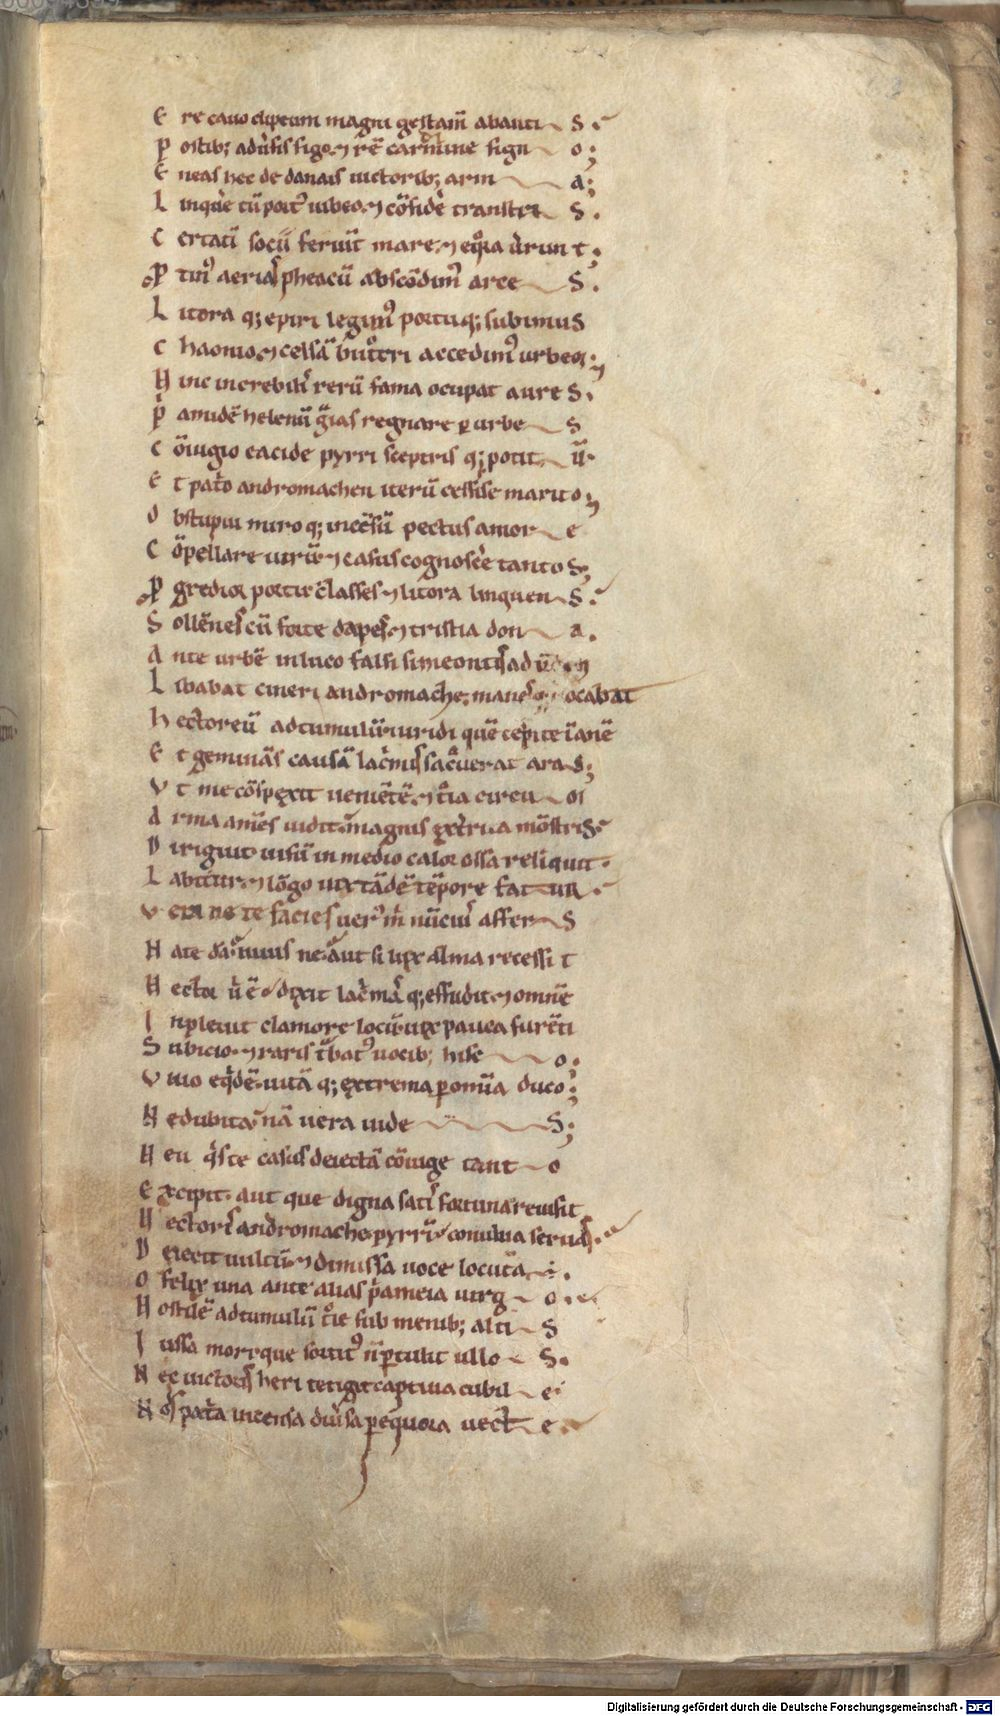 E re cauo clipeum magni gestam̄ abanti S.
P ostib; adũsis figo ⁊ rē carmine sign o;
E neas hec de danais uictorib; arm a;
L inqũe tū port᷒ iubeo ⁊ cōsidẽ transtri S.
C ertatĩ socii feriũt mare ⁊ eqͦra ũrun t;
P tin᷒ aerias pheacū abscōdim᷒ arce S.
L itora q; epiri legim᷒ portuq; subimus
C haonio ⁊ cellsā butͦri accedim᷒ urbem;
H inc incredibil᷒ rerū fama ocupat aure S.
P amidē helenū gͣias regnare ꝑ urbe S
C ōiugio eacide pyrri sceptris q; potit ū.
E t patͥo andromachen iterū cessisse marito;
O bstupui miro q; incēsū pectus amor e
C ōpellare uirū ⁊ casus cognoscẽ tanto S;
P gredior portu classes ⁊ litora linquen S.
S ollēnes cū forte dapes ⁊ tristia don a.
A nte urbē in luco falsi simeontis ad ūdā
L ibabat cineri andromache; manes q; uocabat
H ectoreū ad tumulū uiridi quē cespite inanē
E t geminas causā lacͥmis sacͣuerat aras;
V t me cōspexit ueniētē ⁊ tͦia circu m
A rma amēs uidit magnis extͥrita mōstris.
D iriguit uisu in medio calor ossa reliquit.
L abitur ⁊ lōgo uix tādē tēpore fatur.
V era ne te facies uer᷒ m̄ nūciu᷒ affer S
N ate dͣa uiuis ne aut si lux alma recessi t
H ector ũ ē dixit lacͥmas q; effudit ⁊ omnē
I npleuit clamore locū uix pauca furēti
S ubicio ⁊ raris tͥbat᷒ uocib; hisc o;
V iuo eqͥdē uitā q; extrema ꝑ omia duco;
N e dubita nā uera uide S;
H eu qͥs te casus deiectā cōiuge tant o
E xcipit. aut que digna satis fortuna reuisit
H ectoris andromache pyrrin conubia seruas.
D eiecit uultū ⁊ dimissa uoce locuta ē.
O felix una ante alias pͥameia uirg o.
H ostilē ad tumulū tͦie sub menib; alti S
I ussa mori que sortit᷒ n̄ ꝑtulit ullo S.
N ec uictoris heri tetigit captiua cubil e
N os patͥa incensa diũsa ꝑ equora uect e.
Digitalisierung gefördert durch die Deutsche Forschungsgemeinschaft - DFG